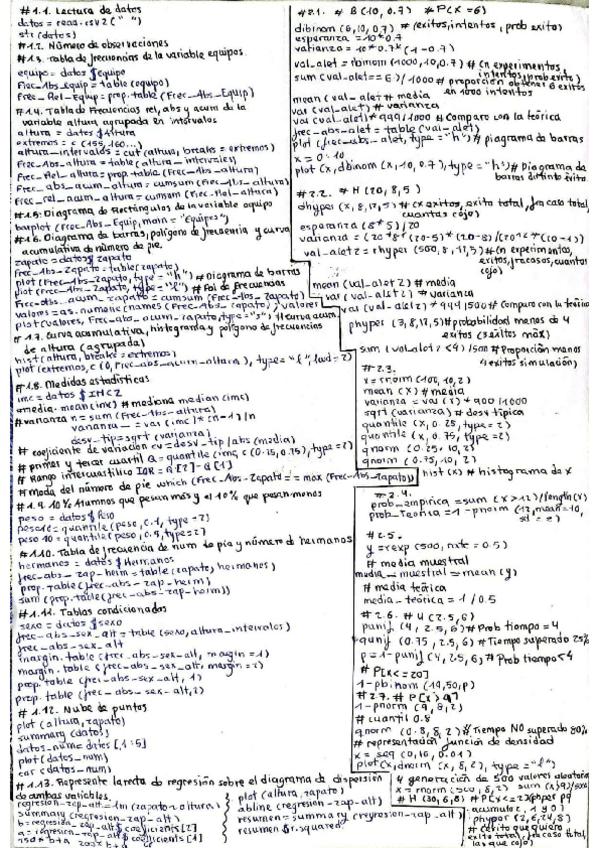 #1.1. Lectura de datos
datos = read.csv2(" ")
str(datos)
#1.2. Número de observaciones
#1.3. tabla de frecuencias de la variable equipos.
equipo = datos $ equipo
Frec_Abs_equip = table(equipo)
Frec_Rel_Equip = prop.table(Frec_Abs_Equip)
#1.4. Tabla de Frecuencias rel, abs y acum de la
variable altura agrupada en intervalos
altura = datos $ altura
extremos = c(155,160...)
altura_intervalos = cut(altura, breaks = extremos)
Frec_Abs_altura = table(altura_intervalos)
Frec_Rel_altura = prop.table(Frec_Abs_altura)
Frec_abs_acum_altura = cumsum(Frec_Abs_altura)
Frec_rel_acum_altura = cumsum(Frec_Rel_altura)
#1.5: Diagrama de Rectángulos de la variable equipo
barplot(Frec_Abs_Equip, main = "equipos")
#1.6. Diagrama de barras, polígono de frecuencia y curva
acumulativa de número de pie.
zapato = datos $ zapato
Frec_Abs_zapato = table(zapato)
plot(Frec_Abs_zapato, type = "h") # Diagrama de barras
plot(Frec_Abs_zapato, type = "l") # Pol de Frecuencias
Frec_abs_acum_zapato = cumsum(Frec_Abs_zapato)
valores = as.numeric(names(Frec_Abs_zapato))
plot(valores, Frec_abs_acum_zapato, type = "s") # curva acum
#1.7. Curva acumulativa, histograma y polígono de frecuencias
de altura (agrupada)
hist(altura, breaks = extremos)
plot(extremos, c(0, Frec_abs_acum_altura), type = "l", lwd = 2)
#1.8. Medidas estadísticas
imc = datos $ IMC2
#media = mean(imc) # mediana median(imc)
#varianza n = sum(Frec_Abs_altura)
varianza = var(imc) * (n-1)/n
desv_tip = sqrt(varianza)
# coeficiente de variación cv = desv_tip/abs(media)
# primer y tercer cuartil Q = quantile(imc, c(0.25, 0.75), type=2)
# Rango intercuartílico IQR = Q[2] - Q[1]
#Moda del número de pie which(Frec_Abs_Zapato == max(Frec_Abs_Zapato))
#1.9. 10% Alumnos que pesan más y el 10% que pesan menos
peso = datos $ Peso
#1.10. Tabla de frecuencia de num de pie y número de hermanos
hermanos = datos $ Hermanos
frec_abs_zap_herm = table(zapato, hermanos)
prop.table(frec_abs_zap_herm)
sum(prop.table(frec_abs_zap_herm))
#1.11. Tablas condicionadas
sexo = datos $ sexo
frec_abs_sex_alt = table(sexo, altura_intervalos)
frec_abs_sex_alt
margin.table(frec_abs_sex_alt, margin = 1)
margin.table(frec_abs_sex_alt, margin = 2)
prop.table(frec_abs_sex_alt, 1)
prop.table(frec_abs_sex_alt, 2)
#1.12. Nube de puntos
plot(altura, zapato)
summary(datos)
datos_num = datos[,1:5]
plot(datos_num)
cor(datos_num)
#1.13. Represente la recta de regresión sobre el diagrama de dispersión
de ambas variables.
regresion_zap_alt = lm(zapato ~ altura)
summary(regresion_zap_alt)
b = regresion_zap_alt $ coefficients[2]
a = regresion_zap_alt $ coefficients[1]
plot(altura, zapato)
abline(regresion_zap_alt)
resumen = summary(regresion_zap_alt)
resumen $r.squared
#2.1. # B(10, 0.7) # P(X=6)
dbinom(6,10,0.7) # (exitos, intentos, prob exito)
esperanza = 10*0.7
varianza = 10*0.7*(1-0.7)
val_alet = rbinom(1000,10,0.7) # (n experimentos,
intentos, prob exito)
sum(val_alet==6)/1000 # proporción obtener 6 exitos
en 1000 intentos
mean(val_alet) # media
var(val_alet) # varianza
var(val_alet)*999/1000 # Comparo con la teórica
frec_abs_alet = table(val_alet)
plot(frec_abs_alet, type = "h") # Diagrama de barras
x = 0:10
plot(x, dbinom(x,10,0.7), type = "h") # Diagrama de
barras distinto éxito
#2.2. # H(20,8,5)
esperanza (8*5)/20
mean(val_alet2) # media
var(val_alet2) # varianza
var(val_alet2)*499/500 # Comparo con la teórica
sum(val_alet2<4)/500 # Proporción menos
4 exitos simulación)
#2.3.
x = rnorm(100,10,2)
mean(x) # media
sqrt(varianza) # desv típica
quantile(x, 0.25, type=2)
quantile(x, 0.75, type=2)
qnorm(0.25,10,2)
qnorm(0.75,10,2)
hist(x) # histograma de x
#2.4.
prob_empirica = sum(x>12)/length(x)
prob_teorica = 1-pnorm(12, mean=10,
sd=2)
#2.5.
y = rexp(500, rate=0.5)
# media muestral
media_muestral = mean(y)
# media teórica
media_teórica = 1/0.5
#2.6. # U(2.5,6)
punif(4, 2.5, 6) # Prob tiempo=4
qunif(0.75, 2.5, 6) # Tiempo superado 25%
p = 1-punif(4,2.5,6) # Prob tiempo<4
# P[X<=20]
1-pbinom(19,50,p)
1-pnorm(9,8,2)
# cuantil 0.8
qnorm(0.8,8,2) # Tiempo NO superado 80%
# representación función de densidad
x = seq(0,16,0.01)
plot(x, dnorm(x,8,2), type = "l")
# generación de 500 valores aleatorios
x = rnorm(500,8,2)
# H(30,6,8)